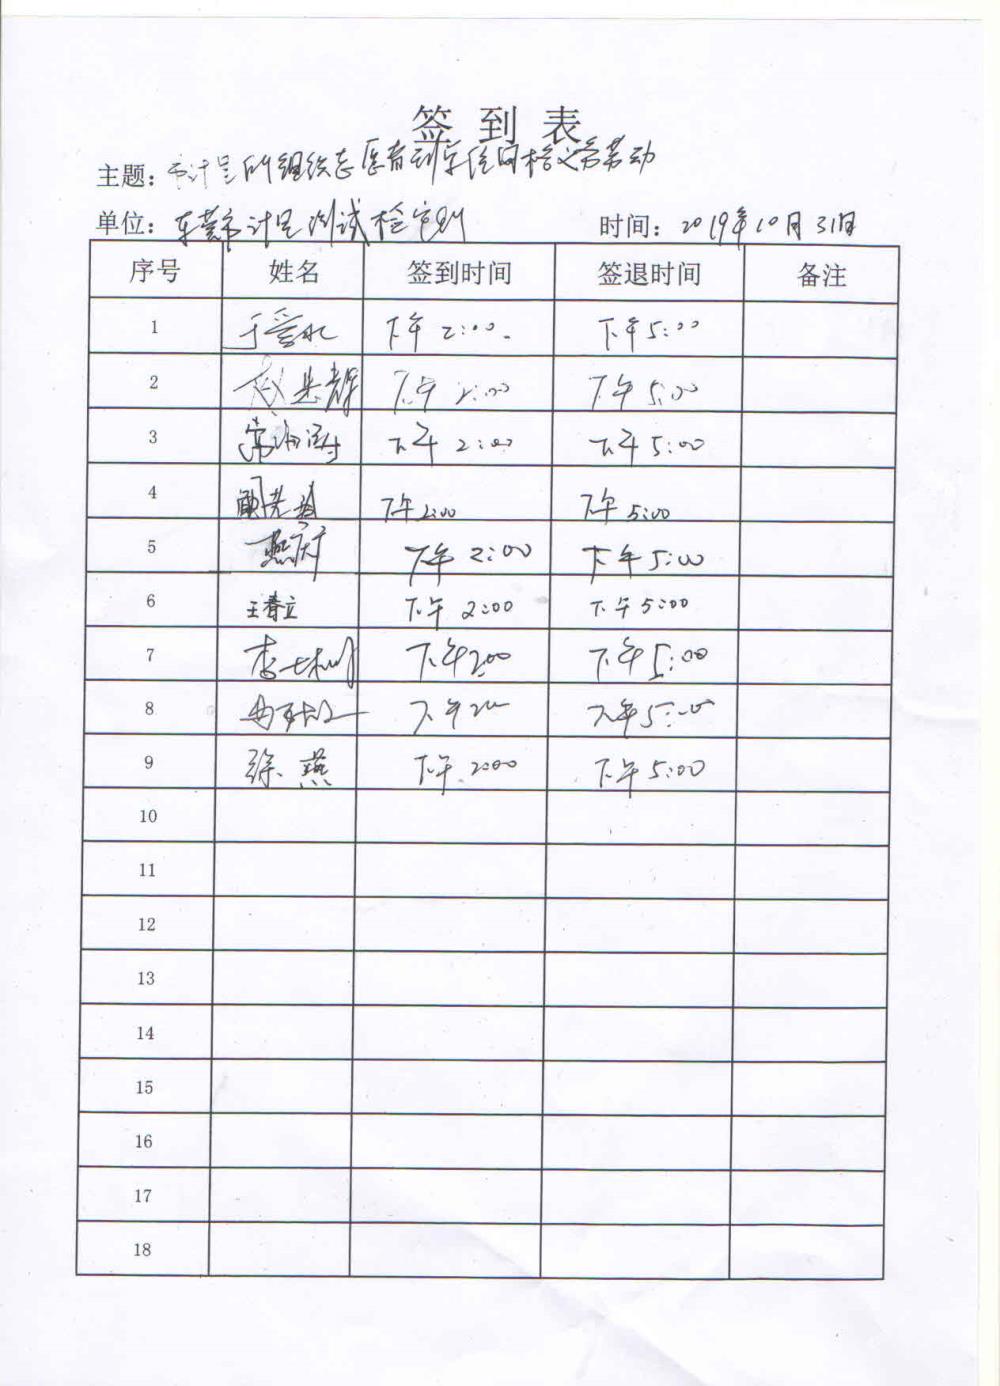 签到表
主题：市计量所组织志愿者到单位网格义务劳动
单位：东莞市计量测试检定所 时间：2019年10月31日
序号 姓名 签到时间 签退时间 备注
1 下午2:00 下午5:00
2 下午2:00 下午5:00
3 下午2:00 下午5:00
4 下午2:00 下午5:00
5 燕庆 下午2:00 下午5:00
6 王春立 下午2:00 下午5:00
7 下午200 下午5:00
8 下午200 下午5:00
9 徐燕 下午2:00 下午5:00
10
11
12
13
14
15
16
17
18